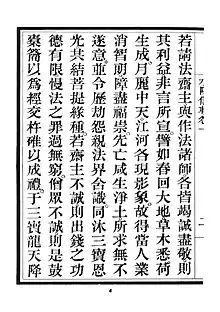 水陸儀軌卷一
若請法齋主與作法諸師各皆竭誠盡敬則
其利益非言所宣譬如春回大地草木悉荷
生成月麗中天江河各現影象故得當人業
消智朗障盡福崇先亡咸生淨土所求無不
遂意並令歷劫怨親法界含識同沐三寶恩
光共結菩提緣種若齋主不誠則出錢之功
德有限慢法之罪過無窮僧眾不誠則是鼓
橐籥以為經交杵碓以成禮於三寶龍天降